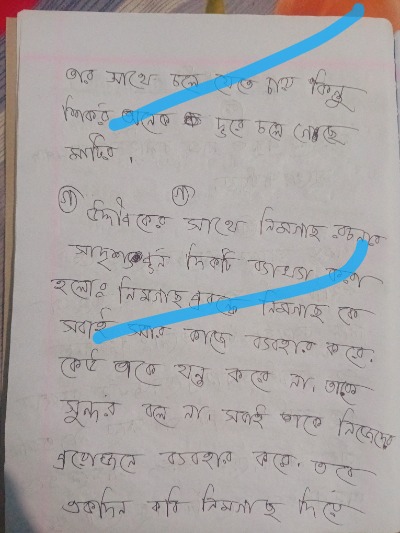 তার সাথে চলে যেতে চায় কিন্তু
শিকড় অনেক দূরে চলে গেছে
মাটির।
গ) গ)
উদ্দীপকের সাথে নিমগাছ রচনার
সাদৃশ্যপূর্ণ দিকটি ব্যাখ্যা করা
হলোঃ নিমগাছ প্রবন্ধে নিমগাছ কে
সবাই সবার কাজে ব্যবহার করে।
কেউ তাকে যত্ন করে না, তাকে
সুন্দর বলে না। সবাই তাকে নিজেদের
প্রয়োজনে ব্যবহার করে। তবে
একদিন কবি নিমগাছ দিয়ে